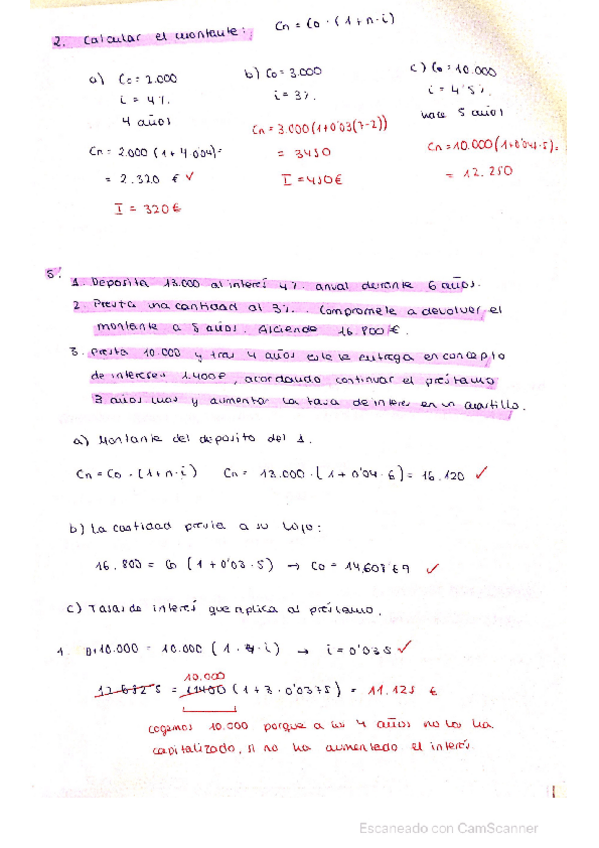 2. Calcular el montante: Cn = Co · (1 + n·i)
a) Co = 2.000
i = 4%
4 años
Cn = 2.000 (1 + 4·0'04) =
= 2.320 € ✓
I = 320 €
b) Co = 3.000
i = 3%
Cn = 3.000 (1 + 0'03 (7-2))
= 3450
I = 450 €
c) Co = 10.000
i = 4'5%
hace 5 años
Cn = 10.000 (1 + 0'045·5) =
= 12.250
5.
1. Deposita 13.000 al interés 4% anual durante 6 años.
2. Presta una cantidad al 3%. Compromete a devolver el
montante a 5 años. Asciende 16.800 €.
3. Presta 10.000 y tras 4 años este le entrega en concepto
de intereses 1.400 €, acordando continuar el préstamo
3 años mas y aumentar la tasa de interes en un cuartillo.
a) Montante del deposito del 1.
Cn = Co · (1 + n·i) Cn = 13.000 · (1 + 0'04 · 6) = 16.120 ✓
b) La cantidad previa a su hijo:
16.800 = Co (1 + 0'03 · 5) → Co = 14.608'69 ✓
c) Tasas de interés que aplica al préstamo.
1. 10.000 = 10.000 (1 · 4 · i) → i = 0'035 ✓
10.000
= 11400 (1 + 3 · 0'0375) = 11.125 €
cogemos 10.000 porque a los 4 años no los ha
capitalizado, si no ha aumentado el interés.
Escaneado con CamScanner